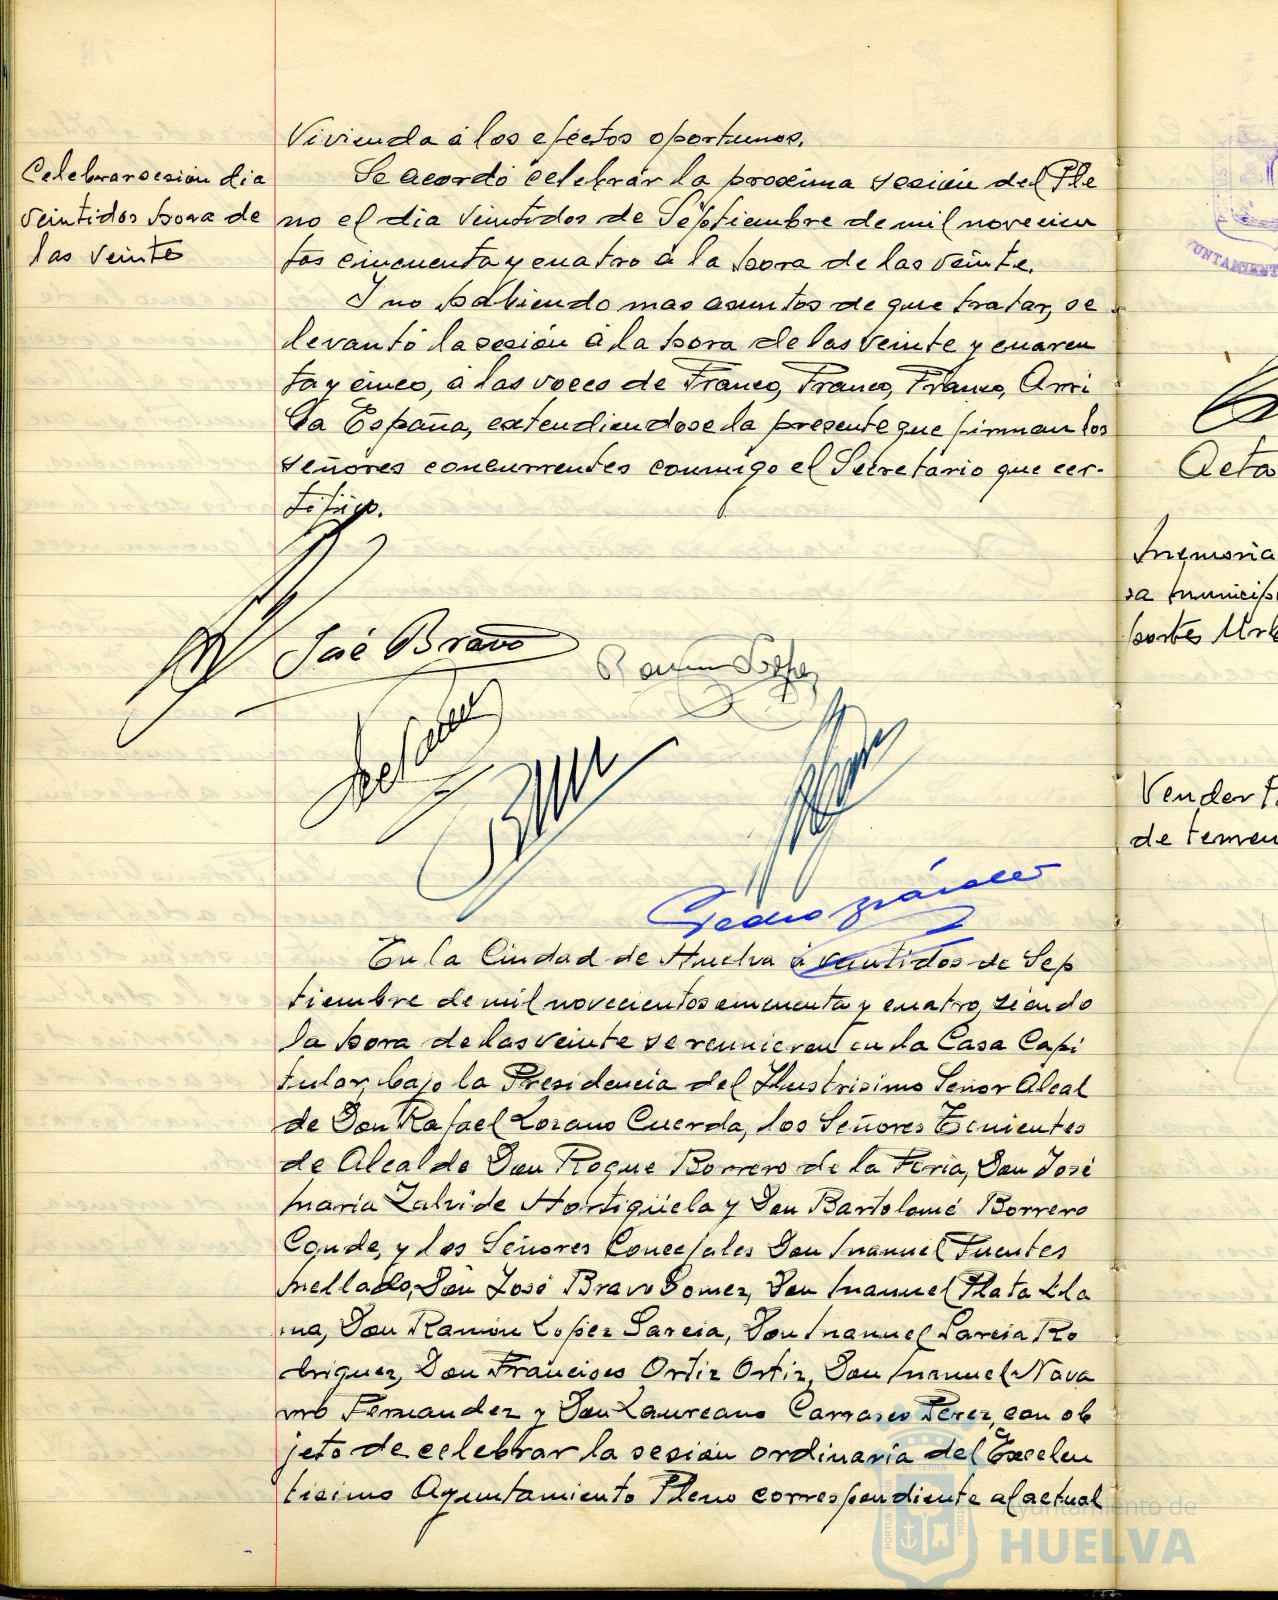 Vivienda á los efectos oportunos.
Celebrar sesion dia
veintidos hora de
las veinte
Se acordó celebrar la proxima sesión del Ple
no el dia veintidos de Septiembre de mil novecien
tos cincuenta y cuatro á la hora de las veinte.
Y no habiendo mas asuntos de que tratar, se
levantó la sesión á la hora de las veinte y cuaren
ta y cinco, á las voces de Franco, Franco, Franco, Arri
ba España, extendiendose la presente que firman los
señores concurrentes conmigo el Secretario que cer-
tifico.
José Bravo
Ramon Lopez
En la Ciudad de Huelva á veintidos de Sep
tiembre de mil novecientos cincuenta y cuatro, siendo
la hora de las veinte se reunieron en la Casa Capi
tular, bajo la Presidencia del Ilustrisimo Señor Alcal
de Don Rafael Lozano Cuerda, los Señores Tenientes
de Alcalde Don Roque Borrero de la Feria, Don José
Maria Zalvide Hortigüela y Don Bartolomé Borrero
Conde, y los Señores Concejales Don Manuel Fuentes
Mellado, Don José Bravo Gomez, Don Manuel Plata Lda
ma, Don Ramón Lopez Garcia, Don Manuel Garcia Ro
driguez, Don Francisco Ortiz Ortiz, Don Manuel Nava
rro Fernandez y Don Laureano Carrasco Perez, con ob
jeto de celebrar la sesión ordinaria del Excelen
tisimo Ayuntamiento Pleno correspondiente al actual
UNTAMIENT
Acta
Memoria
sa municip
portes Urb
Vender
de terren
Ayuntamiento de
HUELVA